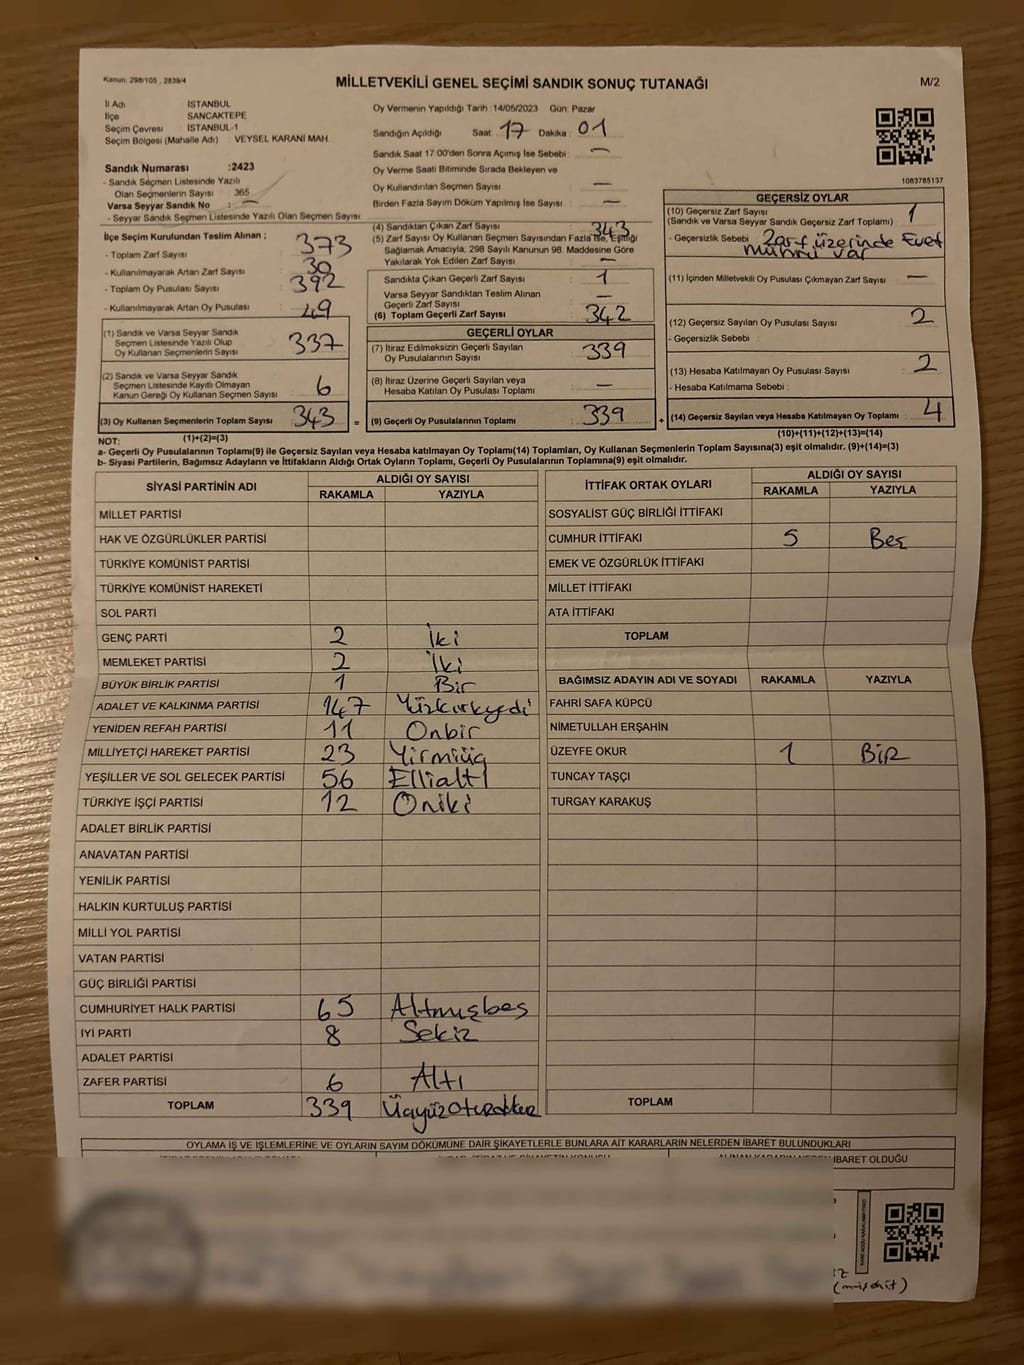 Kanun: 298/105 , 2839/4
MİLLETVEKİLİ GENEL SEÇİMİ SANDIK SONUÇ TUTANAĞI
M/2
İl Adı İSTANBUL
İlçe SANCAKTEPE
Seçim Çevresi İSTANBUL-1
Seçim Bölgesi (Mahalle Adı) VEYSEL KARANİ MAH.
Sandık Numarası :2423
- Sandık Seçmen Listesinde Yazılı
Olan Seçmenlerin Sayısı : 365
Varsa Seyyar Sandık No : —
- Seyyar Sandık Seçmen Listesinde Yazılı Olan Seçmen Sayısı:
Oy Vermenin Yapıldığı Tarih :14/05/2023 Gün: Pazar
Sandığın Açıldığı Saat: 17 Dakika: 01
Sandık Saat 17:00'den Sonra Açılmış İse Sebebi : —
Oy Verme Saati Bitiminde Sırada Bekleyen ve
Oy Kullandırılan Seçmen Sayısı : —
Birden Fazla Sayım Döküm Yapılmış İse Sayısı : —
1083785137
İlçe Seçim Kurulundan Teslim Alınan :
- Toplam Zarf Sayısı : 373
- Kullanılmayarak Artan Zarf Sayısı : 30
- Toplam Oy Pusulası Sayısı : 392
- Kullanılmayarak Artan Oy Pusulası : 49
(1) Sandık ve Varsa Seyyar Sandık
Seçmen Listesinde Yazılı Olup
Oy Kullanan Seçmenlerin Sayısı : 337
(2) Sandık ve Varsa Seyyar Sandık
Seçmen Listesinde Kayıtlı Olmayan
Kanun Gereği Oy Kullanan Seçmen Sayısı : 6
(3) Oy Kullanan Seçmenlerin Toplam Sayısı : 343
(1)+(2)=(3)
(4) Sandıktan Çıkan Zarf Sayısı : 343
(5) Zarf Sayısı Oy Kullanan Seçmen Sayısından Fazla İse, Eşitliği
Sağlamak Amacıyla, 298 Sayılı Kanunun 98. Maddesine Göre
Yakılarak Yok Edilen Zarf Sayısı : —
Sandıkta Çıkan Geçerli Zarf Sayısı : 1
Varsa Seyyar Sandıktan Teslim Alınan
Geçerli Zarf Sayısı : —
(6) Toplam Geçerli Zarf Sayısı : 342
GEÇERLİ OYLAR
(7) İtiraz Edilmeksizin Geçerli Sayılan
Oy Pusulalarının Sayısı : 339
(8) İtiraz Üzerine Geçerli Sayılan veya
Hesaba Katılan Oy Pusulası Toplamı : —
= (9) Geçerli Oy Pusulalarının Toplamı : 339 +
GEÇERSİZ OYLAR
(10) Geçersiz Zarf Sayısı : 1
(Sandık ve Varsa Seyyar Sandık Geçersiz Zarf Toplamı)
- Geçersizlik Sebebi : Zarf üzerinde Evet
mührü var
(11) İçinden Milletvekili Oy Pusulası Çıkmayan Zarf Sayısı: —
(12) Geçersiz Sayılan Oy Pusulası Sayısı : 2
- Geçersizlik Sebebi :
(13) Hesaba Katılmayan Oy Pusulası Sayısı : 2
- Hesaba Katılmama Sebebi :
(14) Geçersiz Sayılan veya Hesaba Katılmayan Oy Toplamı : 4
(10)+(11)+(12)+(13)=(14)
NOT:
a- Geçerli Oy Pusulalarının Toplamı(9) ile Geçersiz Sayılan veya Hesaba katılmayan Oy Toplamı(14) Toplamları, Oy Kullanan Seçmenlerin Toplam Sayısına(3) eşit olmalıdır. (9)+(14)=(3)
b- Siyasi Partilerin, Bağımsız Adayların ve İttifakların Aldığı Ortak Oyların Toplamı, Geçerli Oy Pusulalarının Toplamına(9) eşit olmalıdır.
SİYASİ PARTİNİN ADI ALDIĞI OY SAYISI
RAKAMLA YAZIYLA
MİLLET PARTİSİ
HAK VE ÖZGÜRLÜKLER PARTİSİ
TÜRKİYE KOMÜNİST PARTİSİ
TÜRKİYE KOMÜNİST HAREKETİ
SOL PARTİ
GENÇ PARTİ 2 İki
MEMLEKET PARTİSİ 2 İki
BÜYÜK BİRLİK PARTİSİ 1 Bir
ADALET VE KALKINMA PARTİSİ 147 Yüzkırkyedi
YENİDEN REFAH PARTİSİ 11 Onbir
MİLLİYETÇİ HAREKET PARTİSİ 23 Yirmiüç
YEŞİLLER VE SOL GELECEK PARTİSİ 56 Ellialtı
TÜRKİYE İŞÇİ PARTİSİ 12 Oniki
ADALET BİRLİK PARTİSİ
ANAVATAN PARTİSİ
YENİLİK PARTİSİ
HALKIN KURTULUŞ PARTİSİ
MİLLİ YOL PARTİSİ
VATAN PARTİSİ
GÜÇ BİRLİĞİ PARTİSİ
CUMHURİYET HALK PARTİSİ 65 Altmışbeş
İYİ PARTİ 8 Sekiz
ADALET PARTİSİ
ZAFER PARTİSİ 6 Altı
TOPLAM 339
İTTİFAK ORTAK OYLARI ALDIĞI OY SAYISI
RAKAMLA YAZIYLA
SOSYALİST GÜÇ BİRLİĞİ İTTİFAKI
CUMHUR İTTİFAKI 5 Beş
EMEK VE ÖZGÜRLÜK İTTİFAKI
MİLLET İTTİFAKI
ATA İTTİFAKI
TOPLAM
BAĞIMSIZ ADAYIN ADI VE SOYADI RAKAMLA YAZIYLA
FAHRİ SAFA KÜPCÜ
NİMETULLAH ERŞAHİN
ÜZEYFE OKUR 1 BİR
TUNCAY TAŞÇI
TURGAY KARAKUŞ
TOPLAM
OYLAMA İŞ VE İŞLEMLERİNE VE OYLARIN SAYIM DÖKÜMÜNE DAİR ŞİKAYETLERLE BUNLARA AİT KARARLARIN NELERDEN İBARET BULUNDUKLARI
ALINAN KARARIN NEDEN İBARET OLDUĞU
(müşahit)